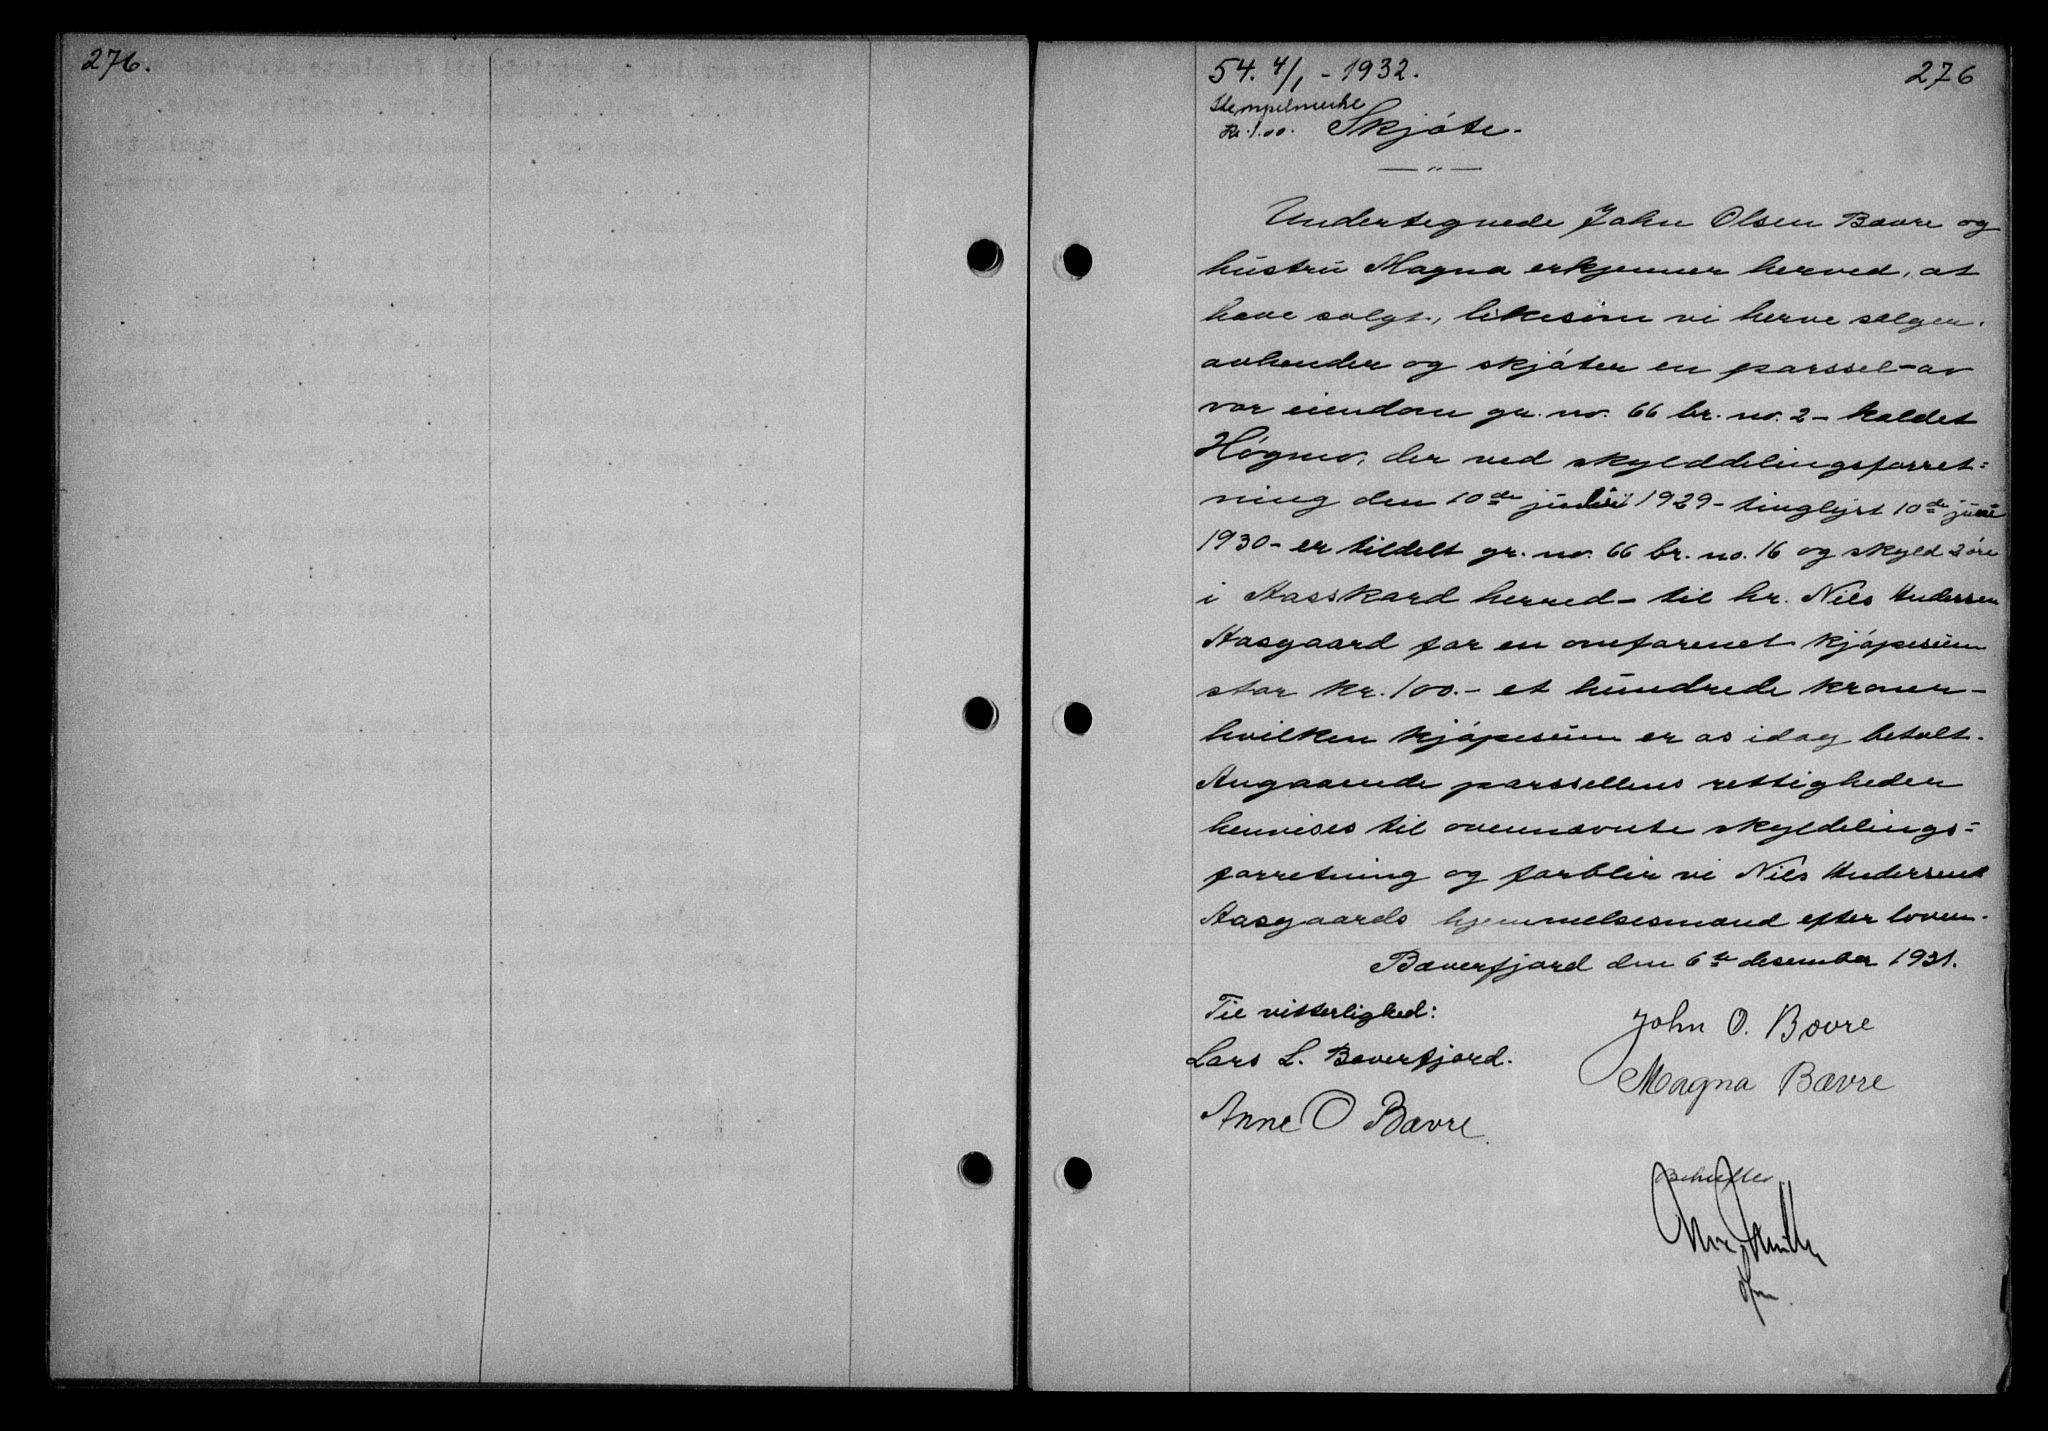 276.
54. 4/1 - 1932.
276
Stempelmerke
Kr. 1.00.
Skjøte.
Undertegnede John Olsen Bævre og
hustru Magna erkjenner herved, at
have solgt, likesom vi herve sælger,
avhender og skjøter en parssel - av
vor eiendom gr. no. 66 br. no. 2 - kaldet
Høgmo, der ved skylddelingsforret=
ning den 10de juli 1929 - tinglyst 10de juni
1930 - er tildelt gr. no. 66 br. no. 16 og skyld 2 øre
i Aasskard herred - til hr. Nils Andersen
Aasgaard for en omforenet kjøpesum
stor kr. 100.- et hundrede kroner -
hvilken kjøpesum er os idag betalt.
Angaaende parssellens rettigheder
henvises til ovennævnte skyldelings=
forretning og forblir vi Nils Andersens
Aasgaards hjemmelsesmænd efter loven.
Bæverfjord den 6te desember 1931.
Til vitterlighed:
John O. Bævre
Lars L. Bæverfjord.
Magna Bævre
Anne O Bævre.
Bekreftes